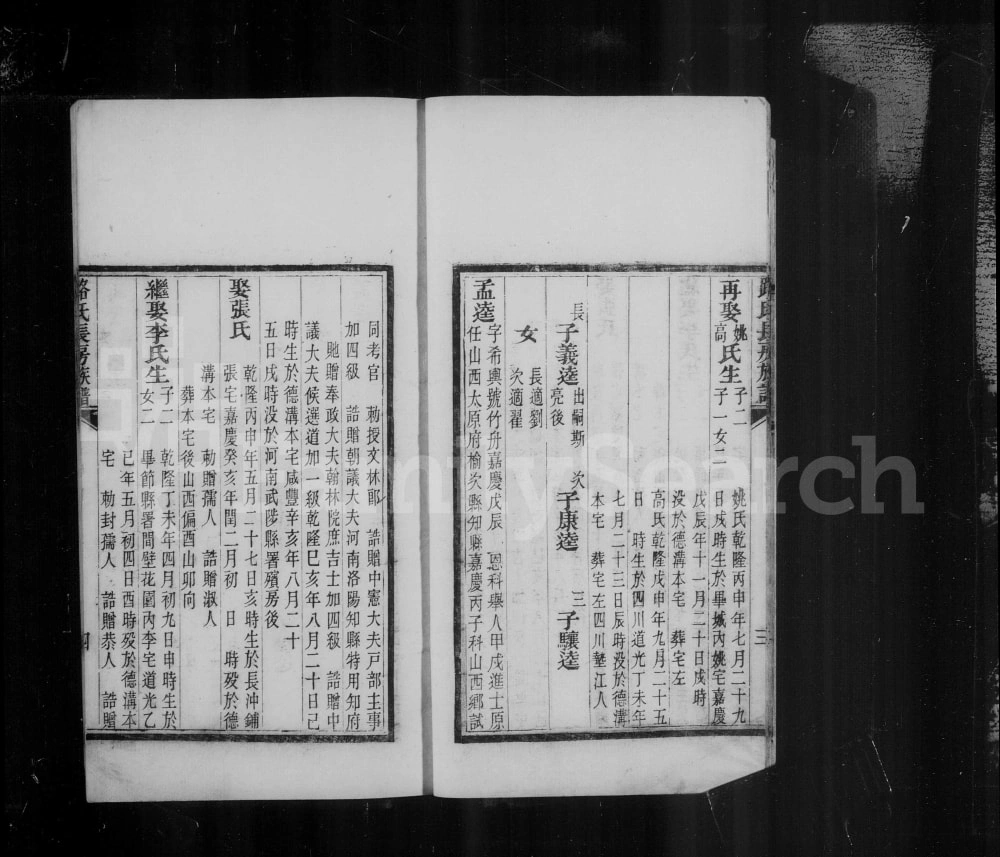 路氏長房族譜
三
再娶姚高氏生子二子一女二
姚氏乾隆丙申年七月二十九
日戌時生於畢城內姚宅嘉慶
戊辰年十一月二十日戌時
没於德溝本宅 葬宅左
高氏乾隆戊申年九月二十五
日 時生於四川道光丁未年
七月二十三日辰時没於德溝
本宅 葬宅左四川墊江人
長子義逵出嗣斯亮後 次子康逵 三子驤逵
女長適劉次適翟
孟逵字希輿號竹舟嘉慶戊辰 恩科舉人甲戌進士原
任山西太原府榆次縣知縣嘉慶丙子科山西鄉試
同考官 勅授文林郎 誥贈中憲大夫戶部主事
加四級 誥贈朝議大夫河南洛陽知縣特用知府
貤贈奉政大夫翰林院庶吉士加四級 誥贈中
議大夫候選道加一級乾隆己亥年八月二十日己
時生於德溝本宅咸豐辛亥年八月二十
五日戌時没於河南武陟縣署殯房後
娶張氏
乾隆丙申年五月二十七日亥時生於長沖鋪
張宅嘉慶癸亥年閏二月初 日 時殁於德
溝本宅 勅贈孺人 誥贈淑人
葬本宅後山西偏酉山卯向
繼娶李氏生子二女二
乾隆丁未年四月初九日申時生於
畢節縣署間壁花園內李宅道光乙
己年五月初四日酉時殁於德溝本
宅 勅封孺人 誥贈恭人 誥贈
路氏長房族譜
四
FamilySearch